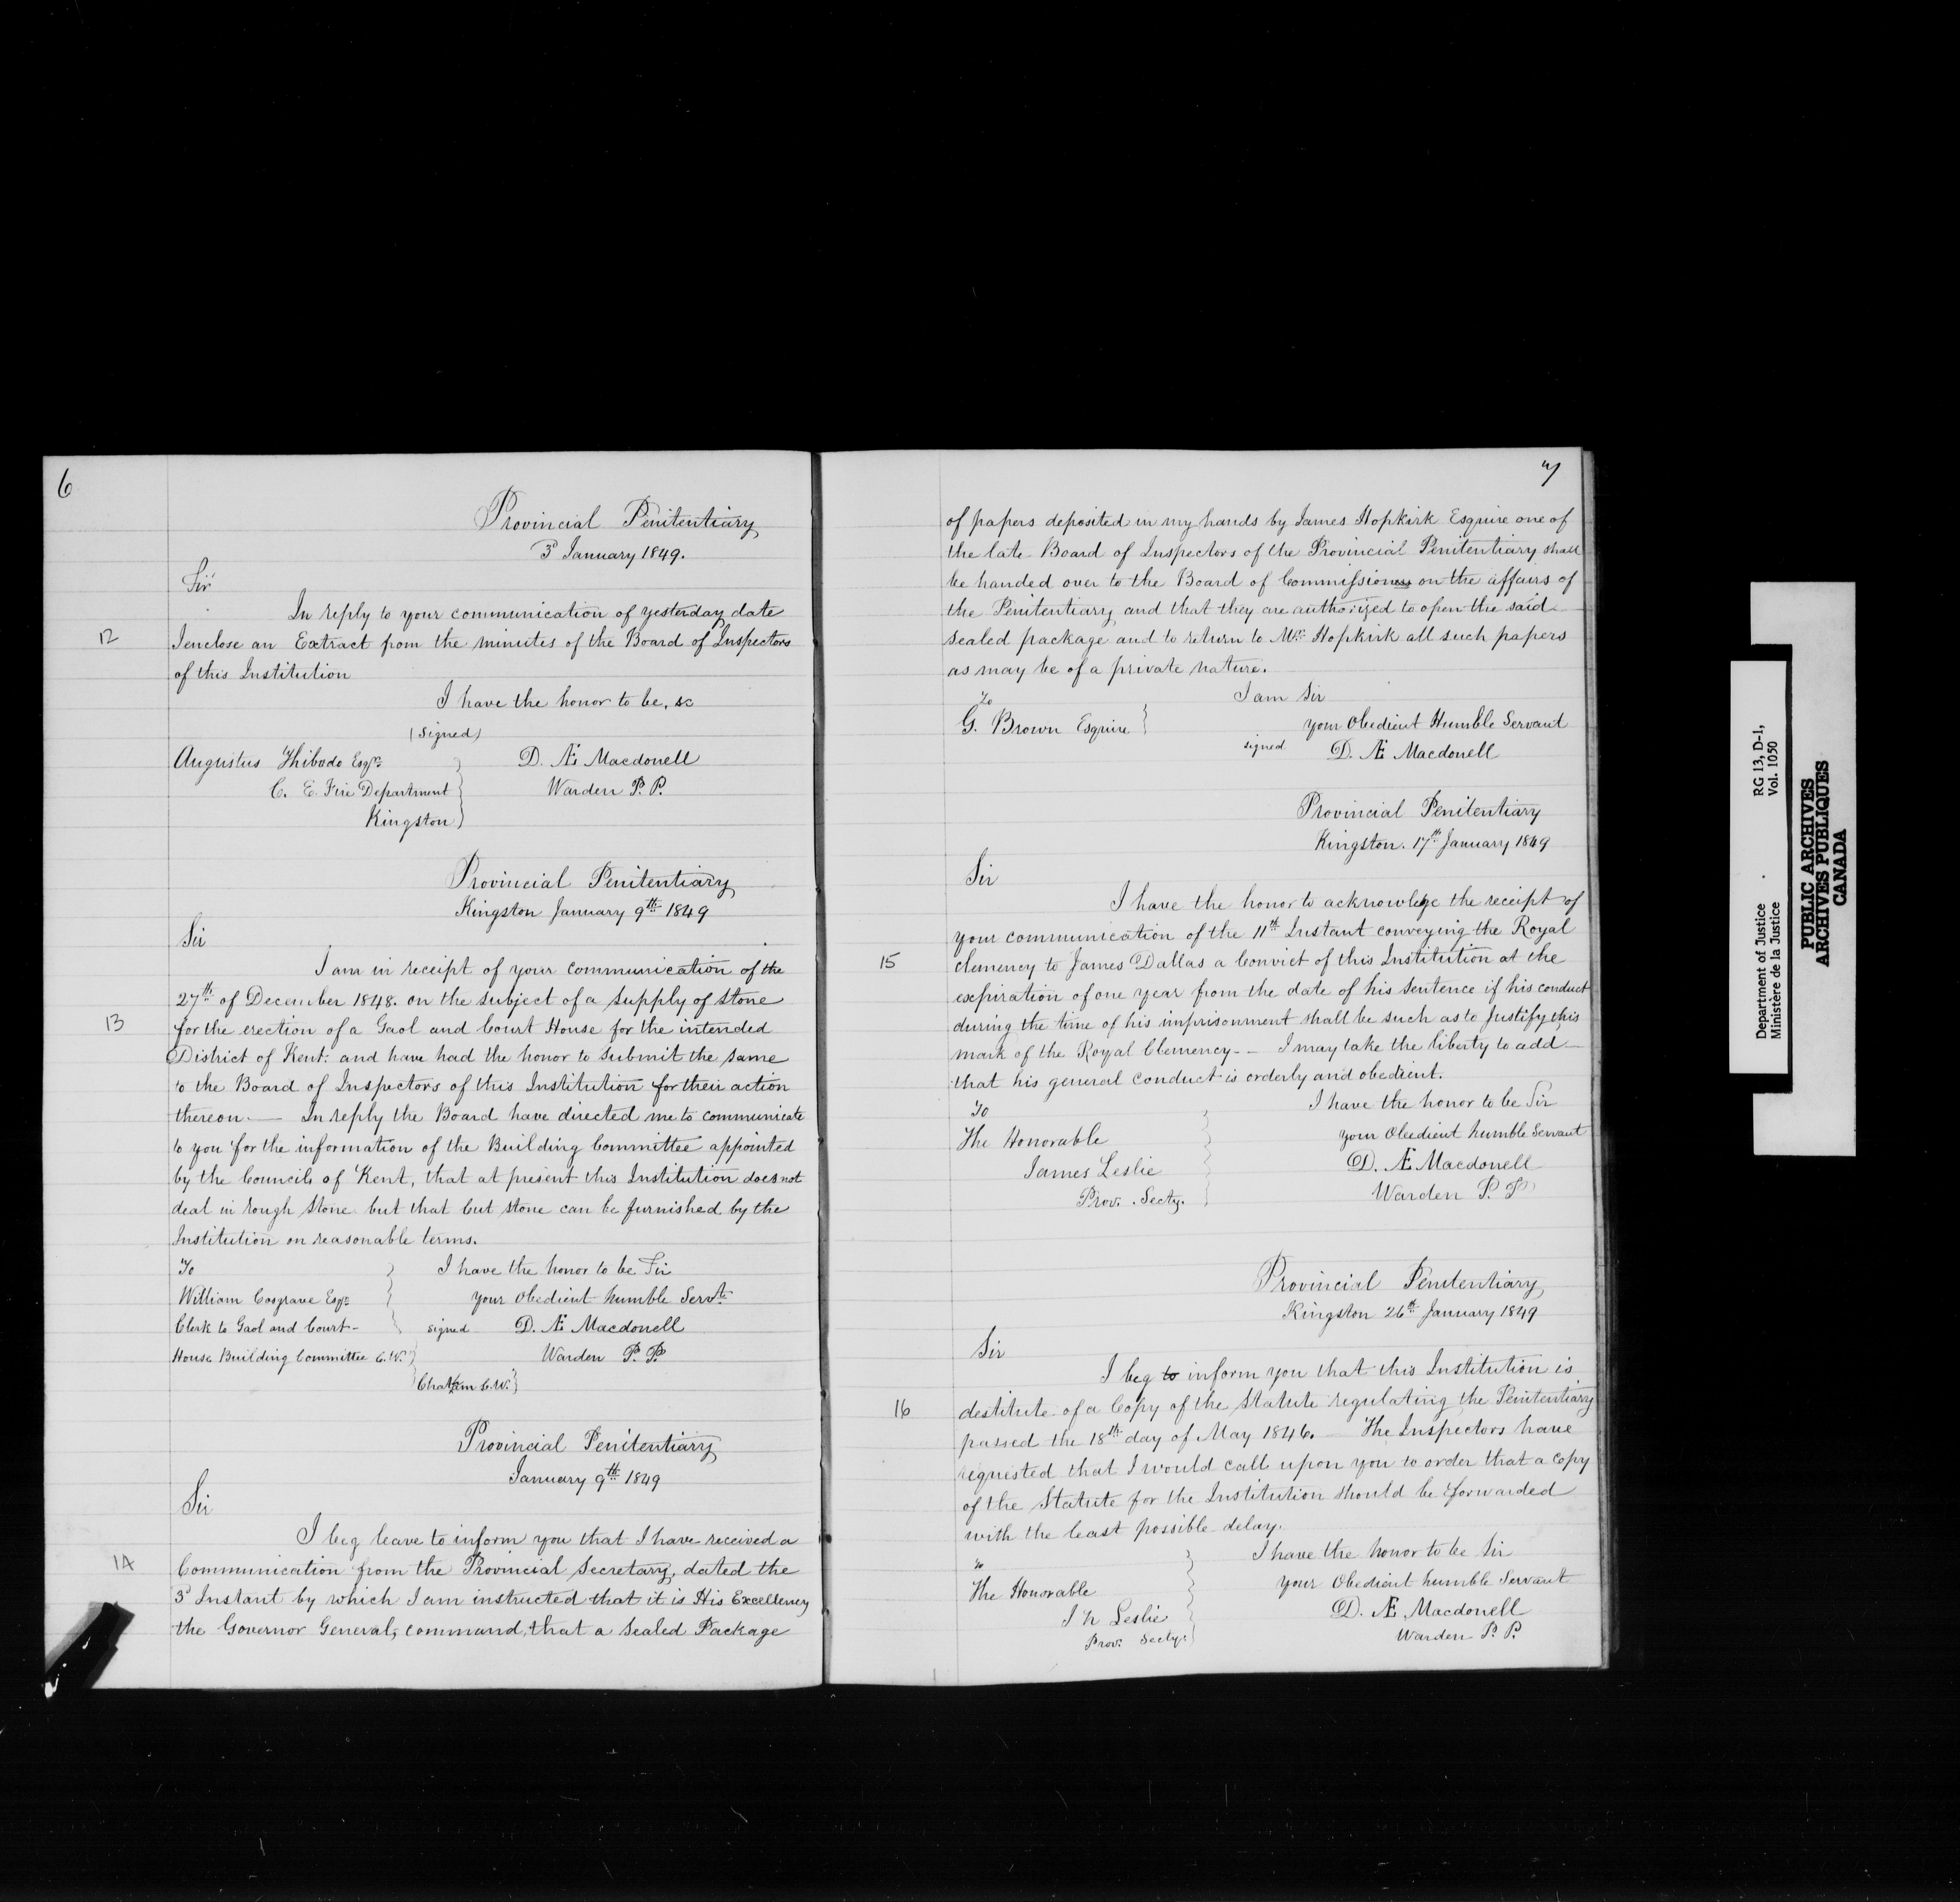 6
Provincial Penitentiary
3d January 1849.
Sir
In reply to your communication of yesterday date
12
I enclose an Extract from the minutes of the Board of Inspectors
of this Institution
I have the honor to be, &c
(Signed)
Augustus Thibodo Esqre
D. Æ Macdonell
C. E. Fire Department
Warden P. P.
Kingston
Provincial Penitentiary
Kingston January 9th 1849
Sir
I am in receipt of your communication of the
27th of December 1848. on the subject of a supply of stone
13
for the erection of a Gaol and Court House for the intended
District of Kent: and have had the honor to submit the same
to the Board of Inspectors of this Institution for their action
thereon.— In reply the Board have directed me to communicate
to you for the information of the Building Committee appointed
by the Councils of Kent, that at present this Institution does not
deal in rough stone but that cut stone can be furnished by the
Institution on reasonable terms.
To
I have the honor to be Sir
William Cosgrave Esqre
your obedient humble Servt
Clerk to Gaol and Court-
signed D. Æ Macdonell
House Building Committee C.W.
Warden P. P.
Chatham C.W.
Provincial Penitentiary
January 9th 1849
Sir
I beg leave to inform you that I have received a
14
Communication from the Provincial Secretary, dated the
3d Instant by which I am instructed that it is His Excellency
the Governor General, command, that a sealed Package
7
of papers deposited in my hands by James Hopkirk Esquire one of
the late Board of Inspectors of the Provincial Penitentiary shall
be handed over to the Board of Commissioners on the affairs of
the Penitentiary and that they are authorized to open the said
sealed package and to return to Mr. Hopkirk all such papers
as may be of a private nature.
To
I am Sir
G. Brown Esquire
your Obedient Humble Servant
signed D. Æ Macdonell
Provincial Penitentiary
Kingston. 17th January 1849
Sir
I have the honor to acknowlege the receipt of
your communication of the 11th Instant conveying the Royal
15
clemency to James Dallas a Convict of this Institution at the
expiration of one year from the date of his sentence if his conduct
during the time of his imprisonment shall be such as to justify this
mark of the Royal Clemency-- I may take the liberty to add—
that his general conduct is orderly and obedient.
To
I have the honor to be Sir
The Honorable
your Obedient humble Servant
James Leslie
D. Æ Macdonell
Prov. Secty.
Warden P. P
Provincial Penitentiary
Kingston 26th January 1849
Sir
I beg to inform you that this Institution is
16
destitute of a Copy of the Statute regulating the Penitentiary
passed the 18th day of May 1846.— The Inspectors have
requested that I would call upon you to order that a copy
of the Statute for the Institution should be forwarded
with the least possible delay.
To
I have the honor to be Sir
The Honorable
your Obedient humble Servant
Leslie
D. Æ Macdonell
Prov. Secty.
Warden P. P.
Department of Justice
Ministère de la Justice
RG 13, D-1,
Vol. 1050
PUBLIC ARCHIVES
ARCHIVES PUBLIQUES
CANADA